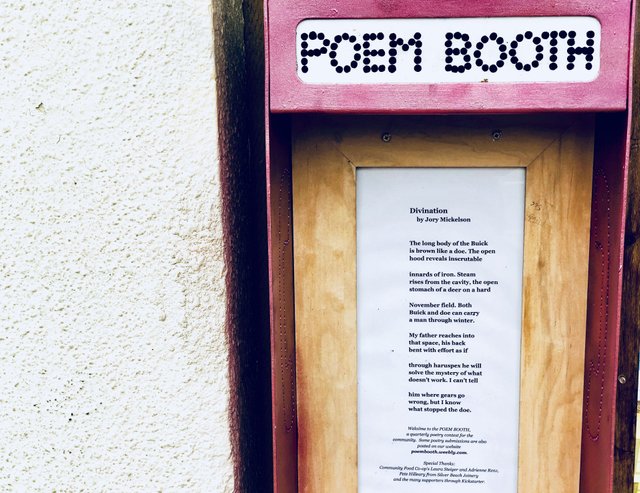 POEM BOOTH
Divination
by Jory Mickelson
The long body of the Buick
is brown like a doe. The open
hood reveals inscrutable
innards of iron. Steam
rises from the cavity, the open
stomach of a deer on a hard
November field. Both
Buick and doe can carry
a man through winter.
My father reaches into
that space, his back
bent with effort as if
through haruspex he will
solve the mystery of what
doesn't work. I can't tell
him where gears go
wrong, but I know
what stopped the doe.
Welcome to the POEM BOOTH,
a quarterly poetry contest for the
community. Some poetry submissions are also
posted on our website
poembooth.weebly.com.
Special Thanks:
Community Food Co-op's Laura Steiger and Adrienne Renz,
Pete Hilleary from Silver Beach Joinery
and the many supporters through Kickstarter.